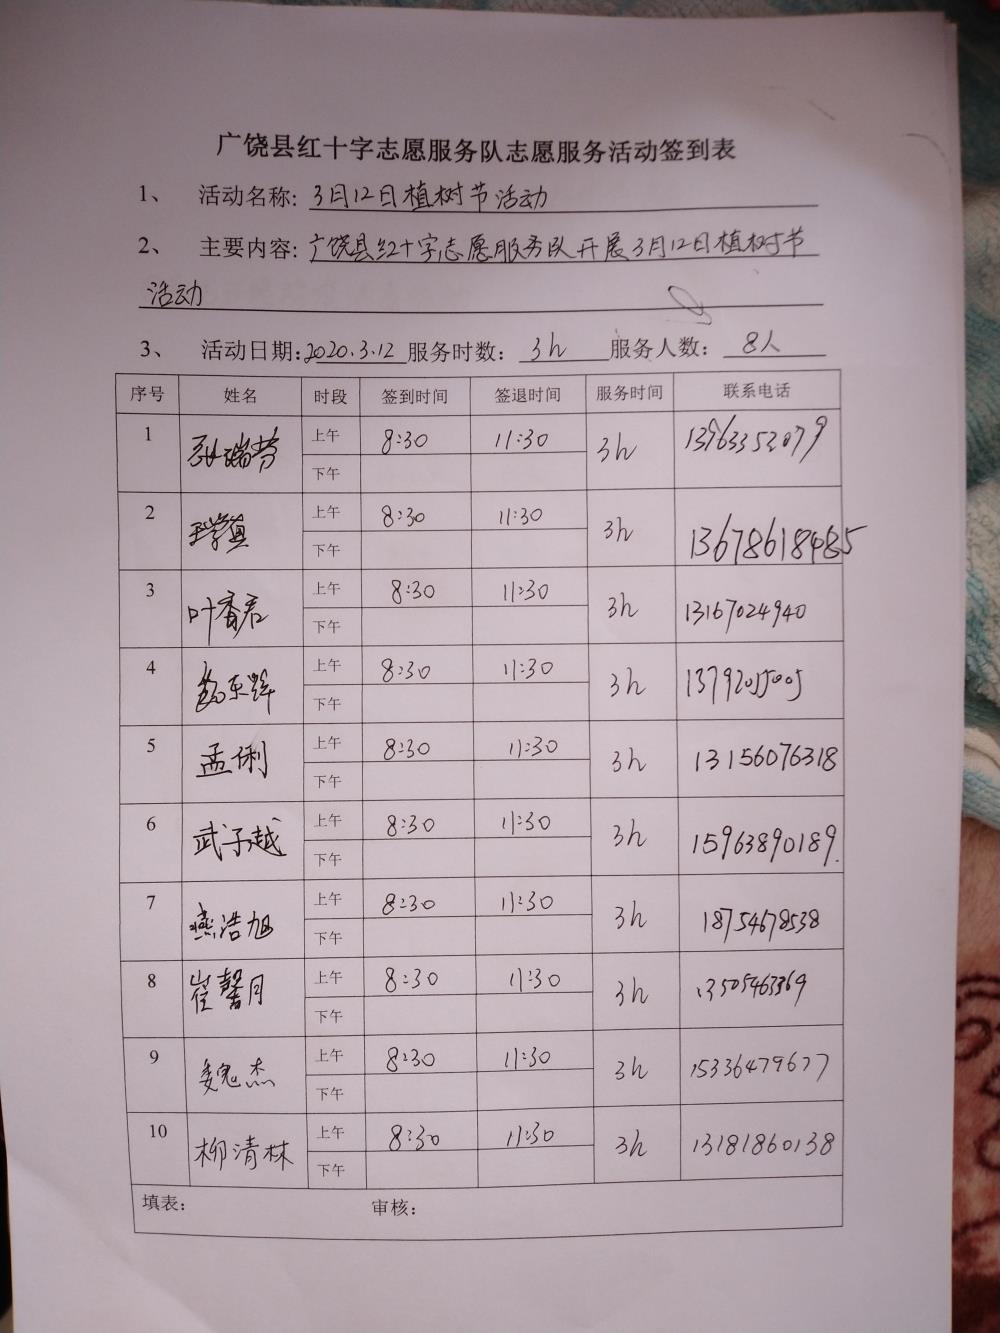 广饶县红十字志愿服务队志愿服务活动签到表
1、 活动名称: 3月12日植树节活动
2、 主要内容: 广饶县红十字志愿服务队开展3月12日植树节
活动
3、 活动日期: 2020.3.12 服务时数: 3h 服务人数: 8人
序号 姓名 时段 签到时间 签退时间 服务时间 联系电话
1 孙瑞芳 上午 8:30 11:30 3h 13963352079
下午
2 上午 8:30 11:30 3h 13678618485
下午
3 叶香君 上午 8:30 11:30 3h 13167024940
下午
4 上午 8:30 11:30 3h
下午
5 孟俐 上午 8:30 11:30 3h 13156076318
下午
6 武子越 上午 8:30 11:30 3h 15963890189
下午
7 燕浩旭 上午 8:30 11:30 3h 18754678538
下午
8 崔馨月 上午 8:30 11:30 3h 13505463369
下午
9 魏杰 上午 8:30 11:30 3h 15336479677
下午
10 柳清林 上午 8:30 11:30 3h 13181860138
下午
填表: 审核: